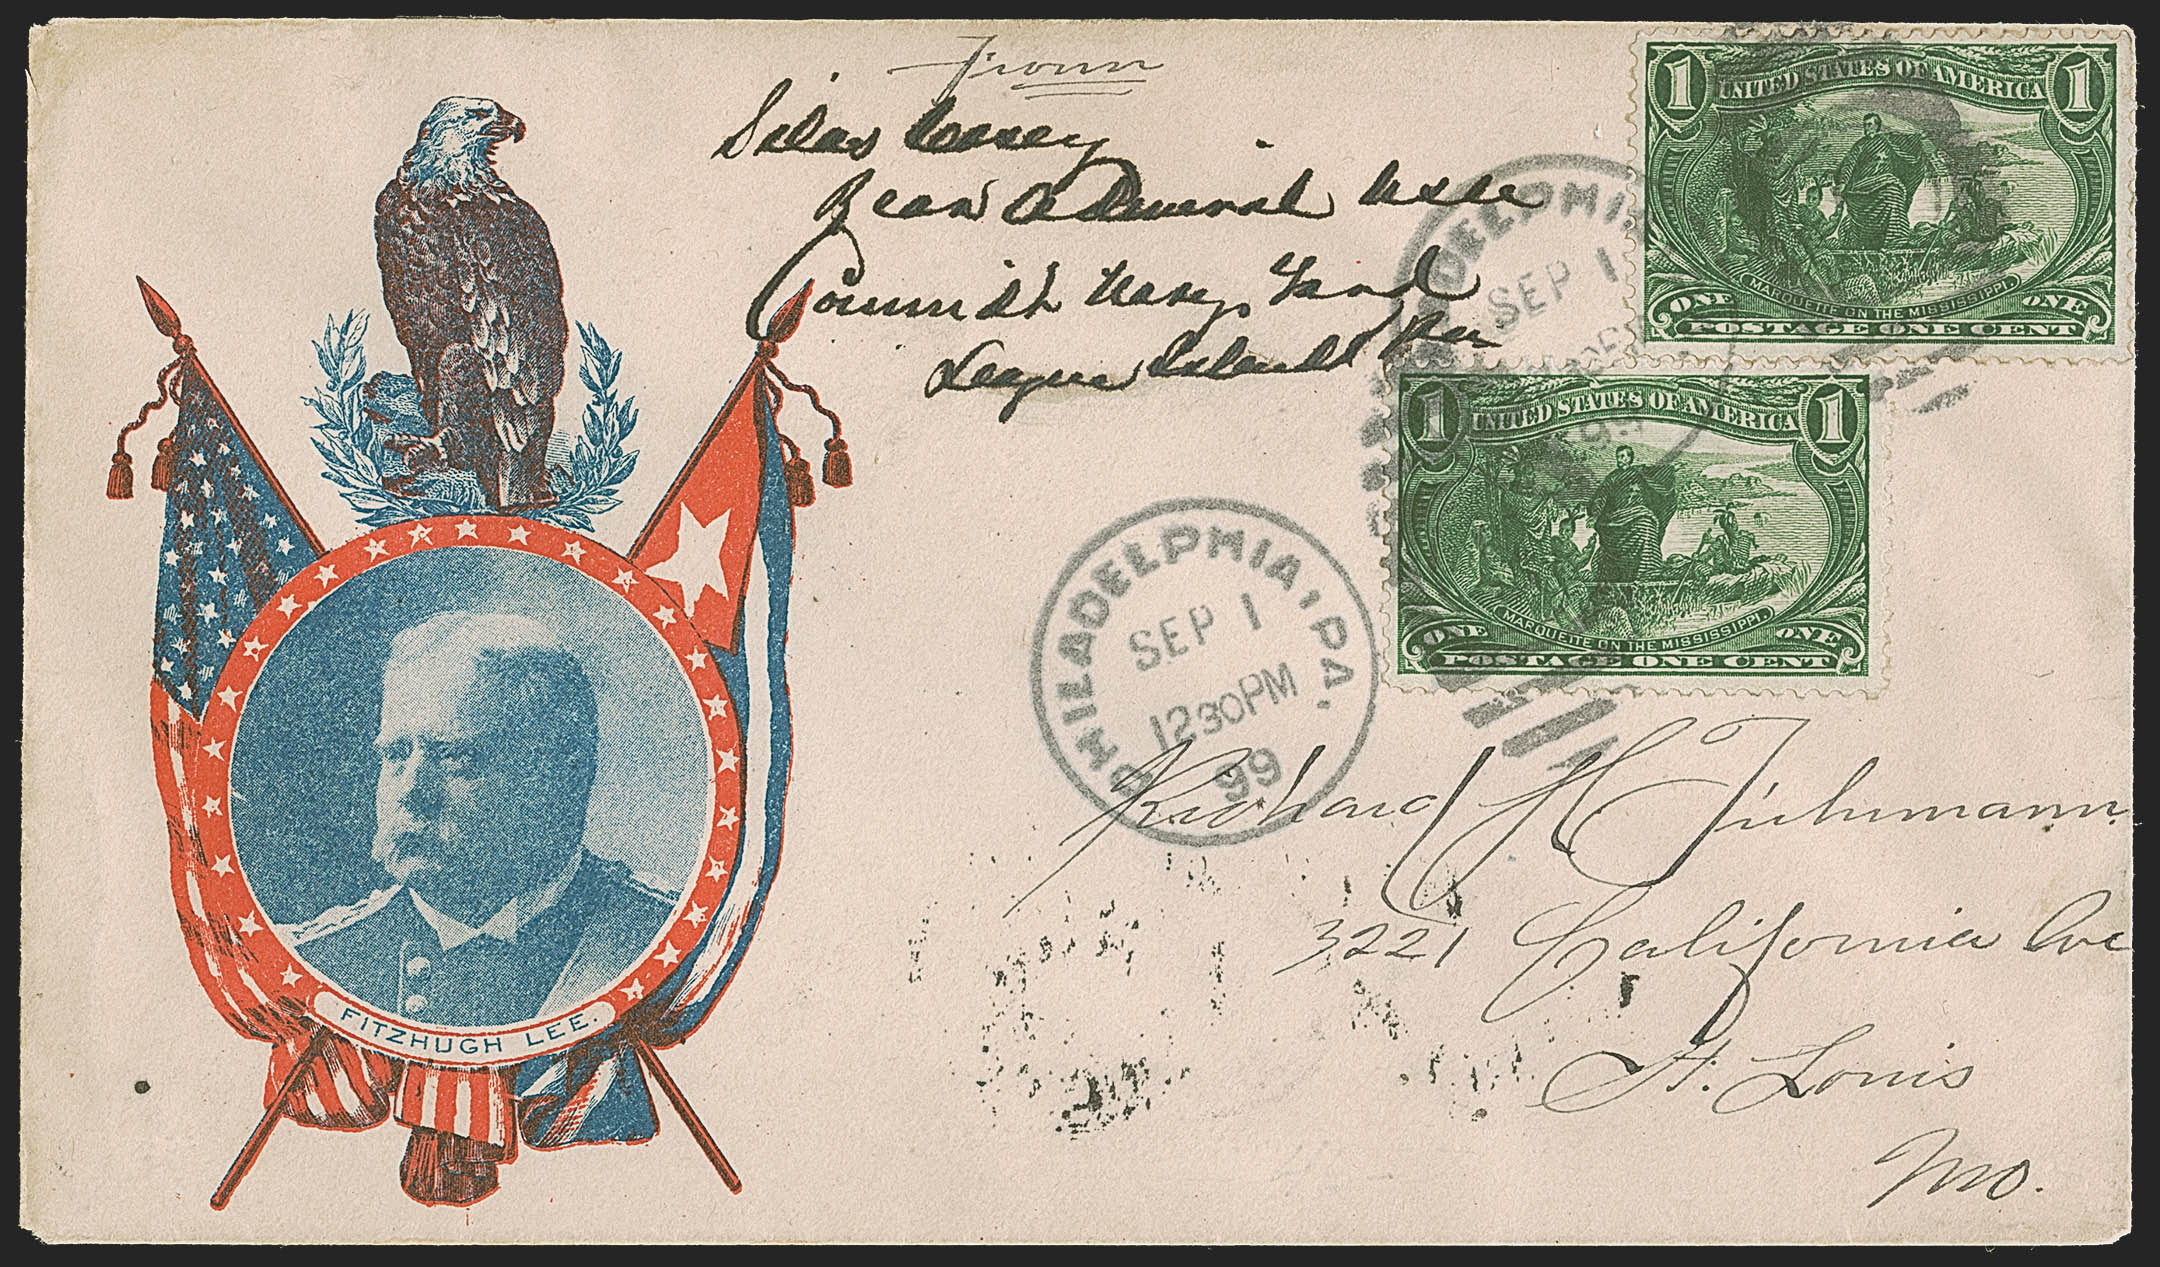 From
Silas Casey
Rear Admiral USN
Commdt Navy Yard
League Island Pa
1 UNITED STATES OF AMERICA 1
MARQUETTE ON THE MISSISSIPPI.
ONE ONE
POSTAGE ONE CENT
PHILADELPHIA
SEP 1
1 UNITED STATES OF AMERICA 1
MARQUETTE ON THE MISSISSIPPI.
ONE ONE
POSTAGE ONE CENT
PHILADELPHIA, PA.
SEP 1
12 30 PM
99
Richard H
3221 California Ave
St. Louis
Mo.
FITZHUGH LEE.